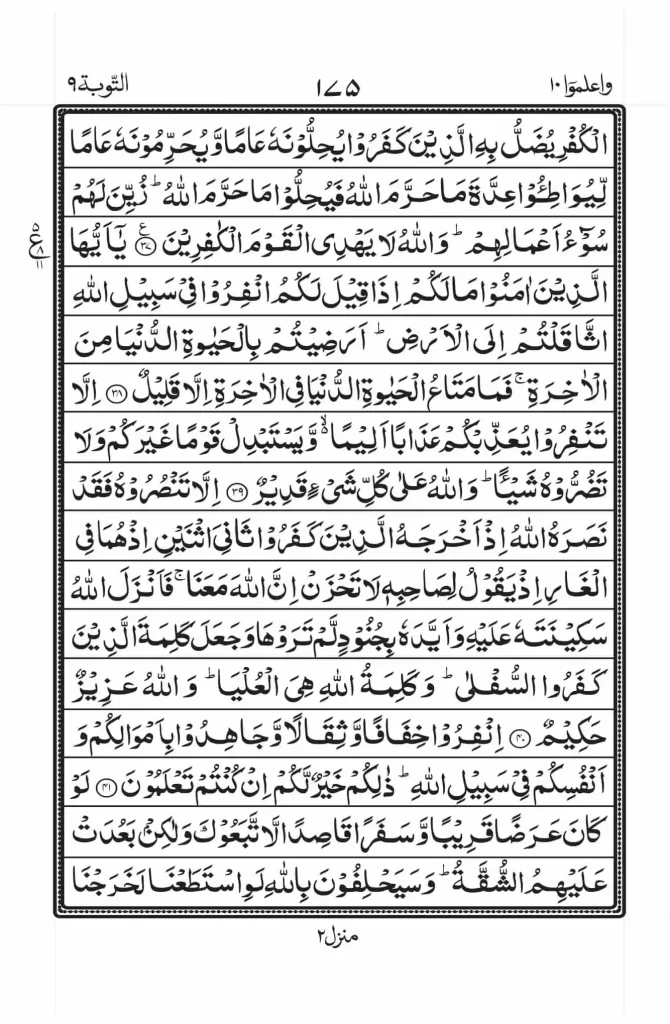 واعلموٓا ١٠ ١٧٥ التّوبة ٩
الۡكُفۡرِ يُضَلُّ بِهِ الَّذِيۡنَ كَفَرُوۡا يُحِلُّوۡنَهٗ عَامًا وَّ يُحَرِّمُوۡنَهٗ عَامًا
لِّيُوَاطِـُٔوۡا عِدَّةَ مَا حَرَّمَ اللّٰهُ فَيُحِلُّوۡا مَا حَرَّمَ اللّٰهُ ؕ زُيِّنَ لَهُمۡ
سُوۡٓءُ اَعۡمَالِهِمۡ ؕ وَ اللّٰهُ لَا يَهۡدِى الۡقَوۡمَ الۡكٰفِرِيۡنَ ﴿٣٧﴾ ع يٰۤاَيُّهَا
الَّذِيۡنَ اٰمَنُوۡا مَا لَكُمۡ اِذَا قِيۡلَ لَكُمُ انْفِرُوۡا فِىۡ سَبِيۡلِ اللّٰهِ
اثَّاقَلۡتُمۡ اِلَى الۡاَرۡضِ ؕ اَرَضِيۡتُمۡ بِالۡحَيٰوةِ الدُّنۡيَا مِنَ
الۡاٰخِرَةِ ۚ فَمَا مَتَاعُ الۡحَيٰوةِ الدُّنۡيَا فِى الۡاٰخِرَةِ اِلَّا قَلِيۡلٌ ﴿٣٨﴾ اِلَّا
تَنۡفِرُوۡا يُعَذِّبۡكُمۡ عَذَابًا اَلِيۡمًا ۙ وَّ يَسۡتَبۡدِلۡ قَوۡمًا غَيۡرَكُمۡ وَلَا
تَضُرُّوۡهُ شَيۡـًٔا ؕ وَ اللّٰهُ عَلٰى كُلِّ شَىۡءٍ قَدِيۡرٌ ﴿٣٩﴾ اِلَّا تَنۡصُرُوۡهُ فَقَدۡ
نَصَرَهُ اللّٰهُ اِذۡ اَخۡرَجَهُ الَّذِيۡنَ كَفَرُوۡا ثَانِىَ اثۡنَيۡنِ اِذۡ هُمَا فِى
الۡغَارِ اِذۡ يَقُوۡلُ لِصَاحِبِهٖ لَا تَحۡزَنۡ اِنَّ اللّٰهَ مَعَنَا ۚ فَاَنۡزَلَ اللّٰهُ
سَكِيۡنَتَهٗ عَلَيۡهِ وَ اَيَّدَهٗ بِجُنُوۡدٍ لَّمۡ تَرَوۡهَا وَ جَعَلَ كَلِمَةَ الَّذِيۡنَ
كَفَرُوا السُّفۡلٰى ؕ وَ كَلِمَةُ اللّٰهِ هِىَ الۡعُلۡيَا ؕ وَ اللّٰهُ عَزِيۡزٌ
حَكِيۡمٌ ﴿٤٠﴾ اِنْفِرُوۡا خِفَافًا وَّ ثِقَالًا وَّ جَاهِدُوۡا بِاَمۡوَالِكُمۡ وَ
اَنۡفُسِكُمۡ فِىۡ سَبِيۡلِ اللّٰهِ ؕ ذٰلِكُمۡ خَيۡرٌ لَّكُمۡ اِنۡ كُنۡتُمۡ تَعۡلَمُوۡنَ ﴿٤١﴾ لَوۡ
كَانَ عَرَضًا قَرِيۡبًا وَّ سَفَرًا قَاصِدًا لَّا تَّبَعُوۡكَ وَلٰكِنۡۢ بَعُدَتۡ
عَلَيۡهِمُ الشُّقَّةُ ؕ وَ سَيَحۡلِفُوۡنَ بِاللّٰهِ لَوِ اسۡتَطَعۡنَا لَخَرَجۡنَا
منزل ٢